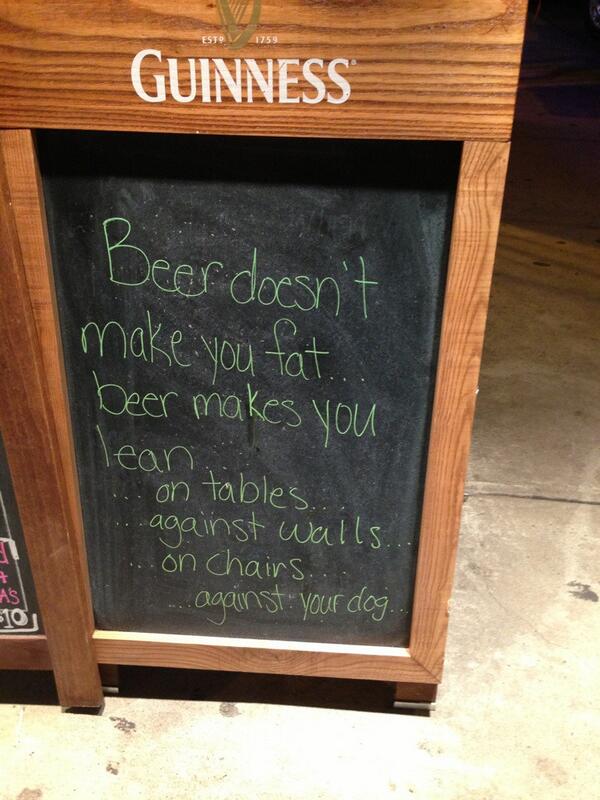 ESTD 1759
GUINNESS
Beer doesn't
make you fat...
beer makes you
lean
... on tables...
... against walls...
... on chairs...
.... against your dog...
A'S
$10